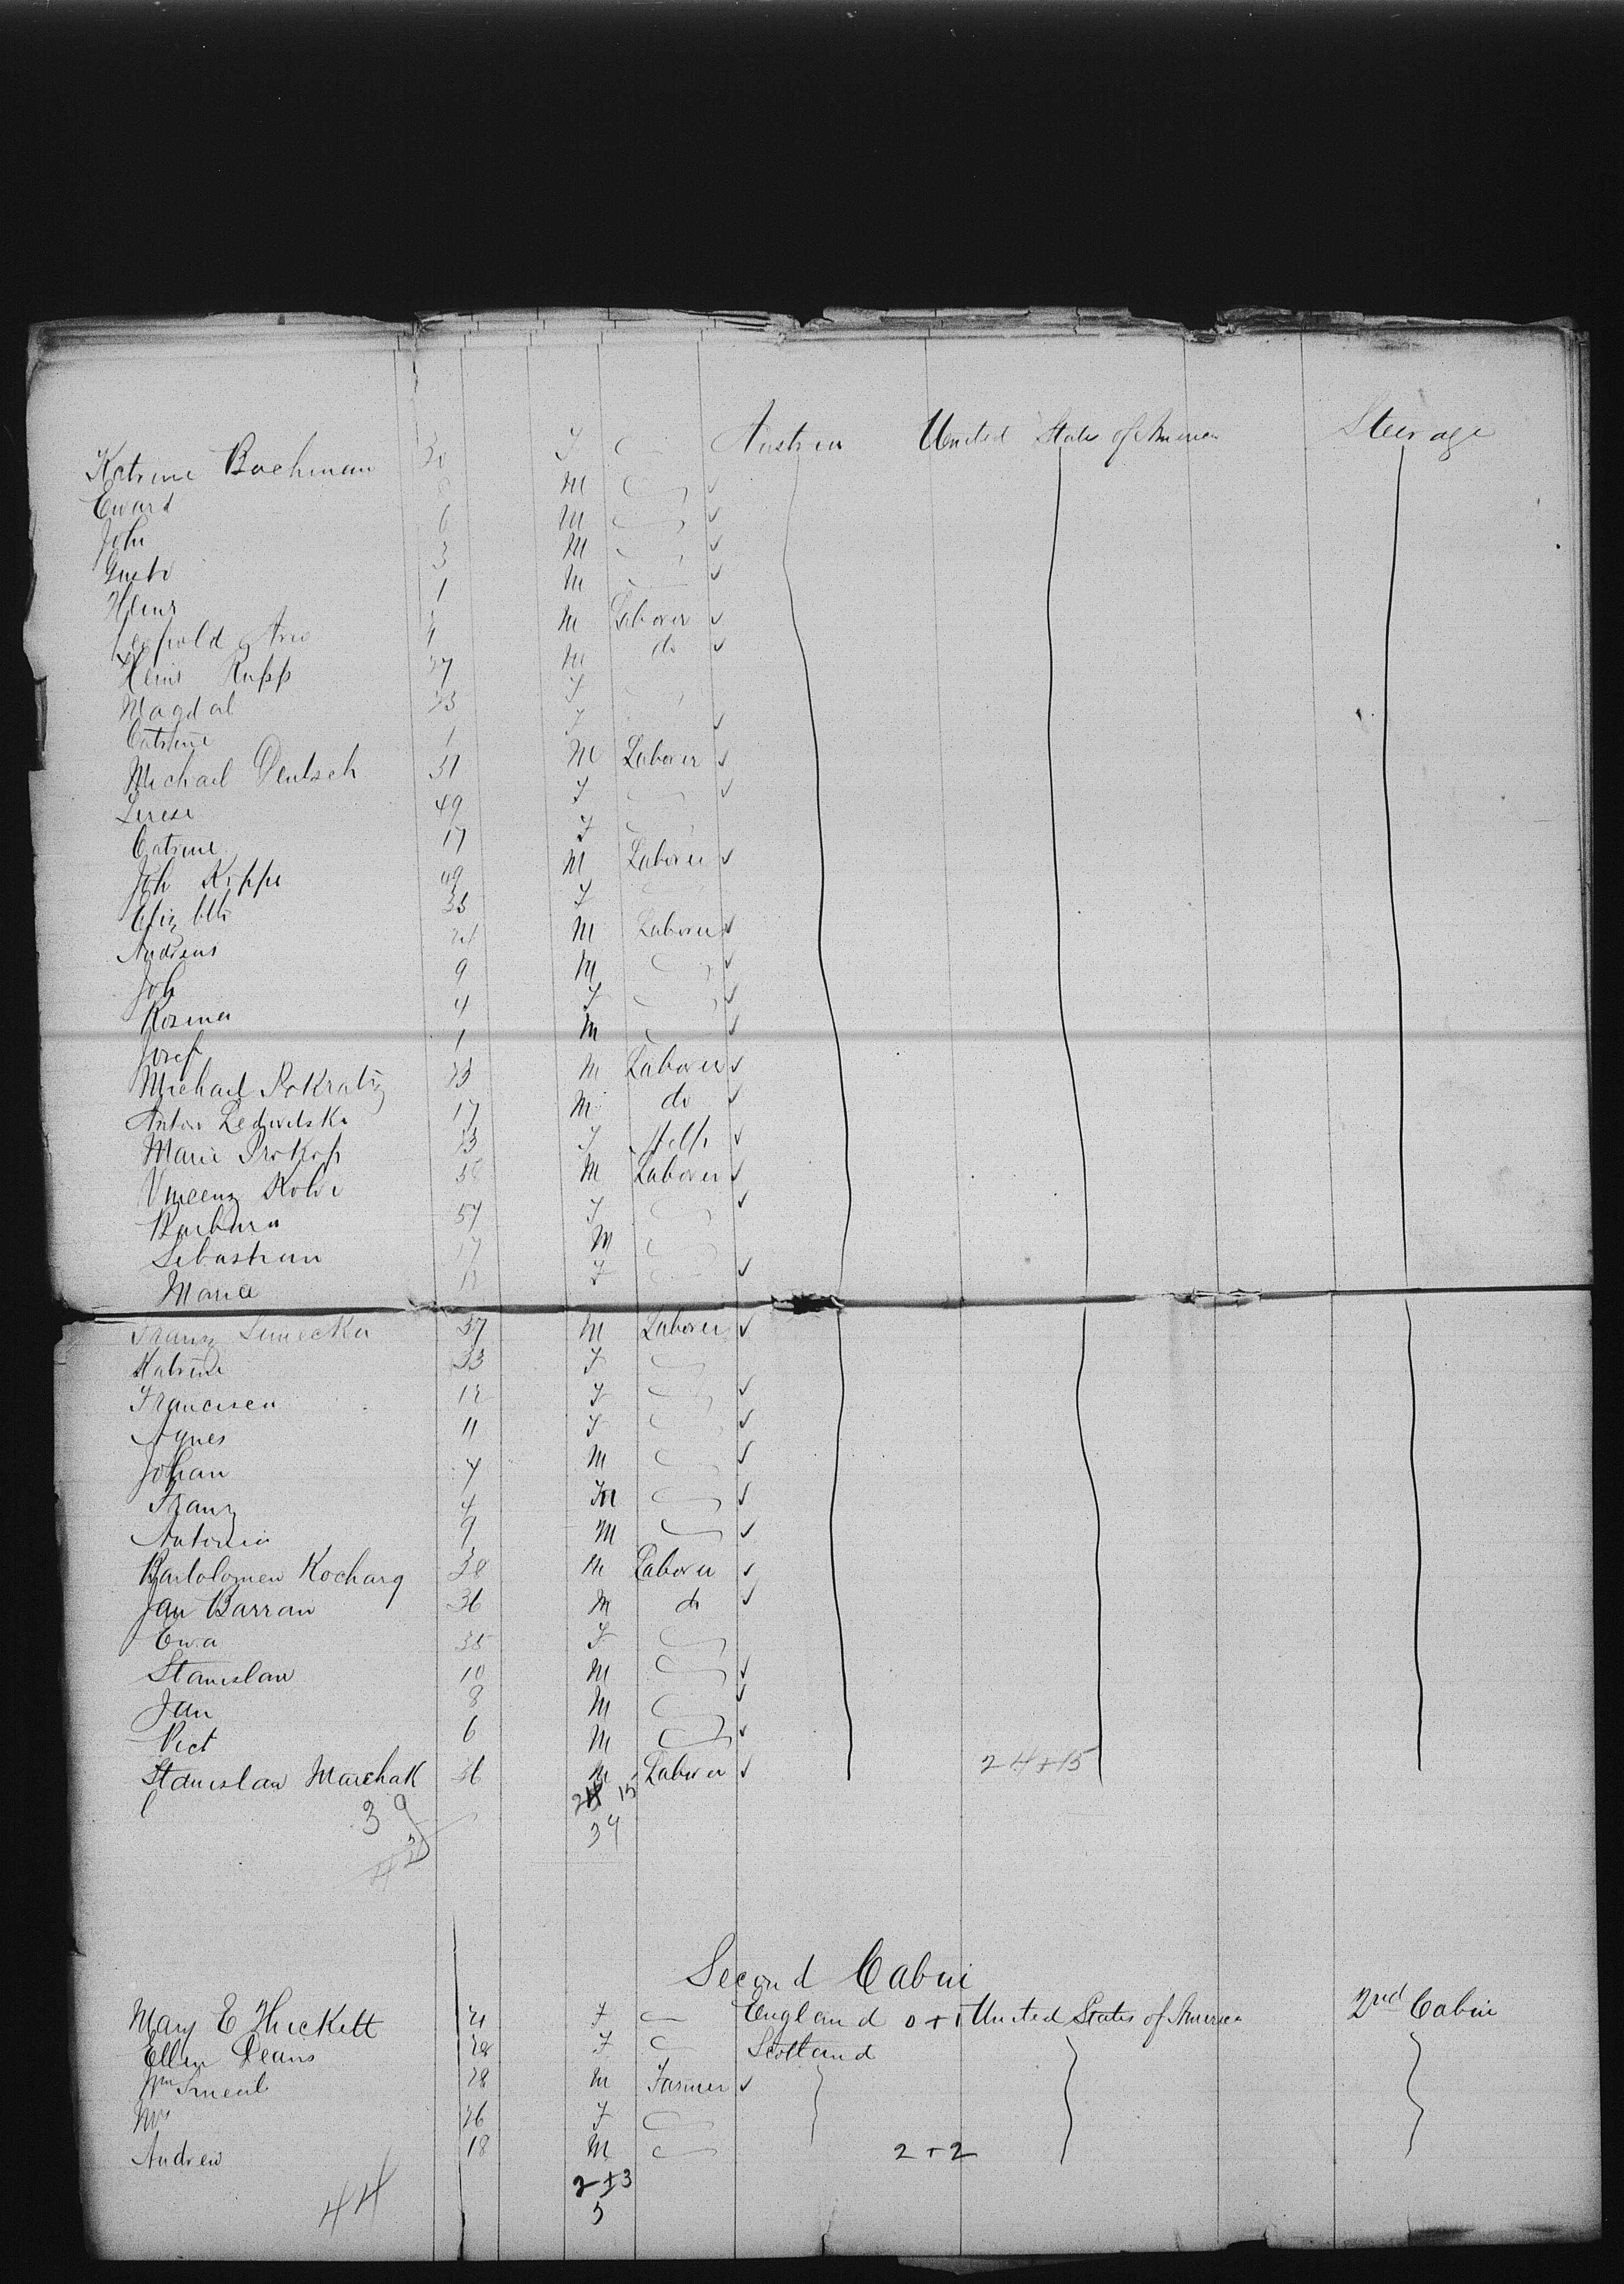 Katrine Bachman F Austria United States of America Steerage
Eward M
Joh 6 M
Gustv 3 M
Heinr 1 M
Leopold M Laborer
Heinr Rupp 27 M do
Magdal 23 F
Catrine 1 F
Michael Deutsch 51 M Laborer
Terese 49 F
Catrine 17 F
Joh Koppi 49 M Laborer
Elizbth 33 F
Andreas M Laborer
Joh 9 M
Rosina 4 F
Josef 1 M
Michael Pokratz 23 M Laborer
Anton 17 M do
Marie Prokop 23 F
Vincenz 58 M Laborer
Barbara 54 F
Sebastian 17 M
Maria 12 F
Franz 37 M Laborer
Katrine 33 F
Francisca 12 F
Agnes 11 F
Johan 7 M
Franz 4 M
Antonia 9 M
Bartolomen Kocharg 38 M Laborer
Jan Barran 36 M do
Ewa 35 F
Stanislaw 10 M
Jan 8 M
Vict 6 M
Stanislaw Marchak 36 M Laborer 24+15
39 24 15
39
Second Cabin
Mary E Huckett 21 F England 0+1 United States of America 2nd Cabin
Ellen Deans 28 F Scotland
Wm 28 M Farmer
Mrs 26 F
Andrew 18 M 2+2
44 2+3
5